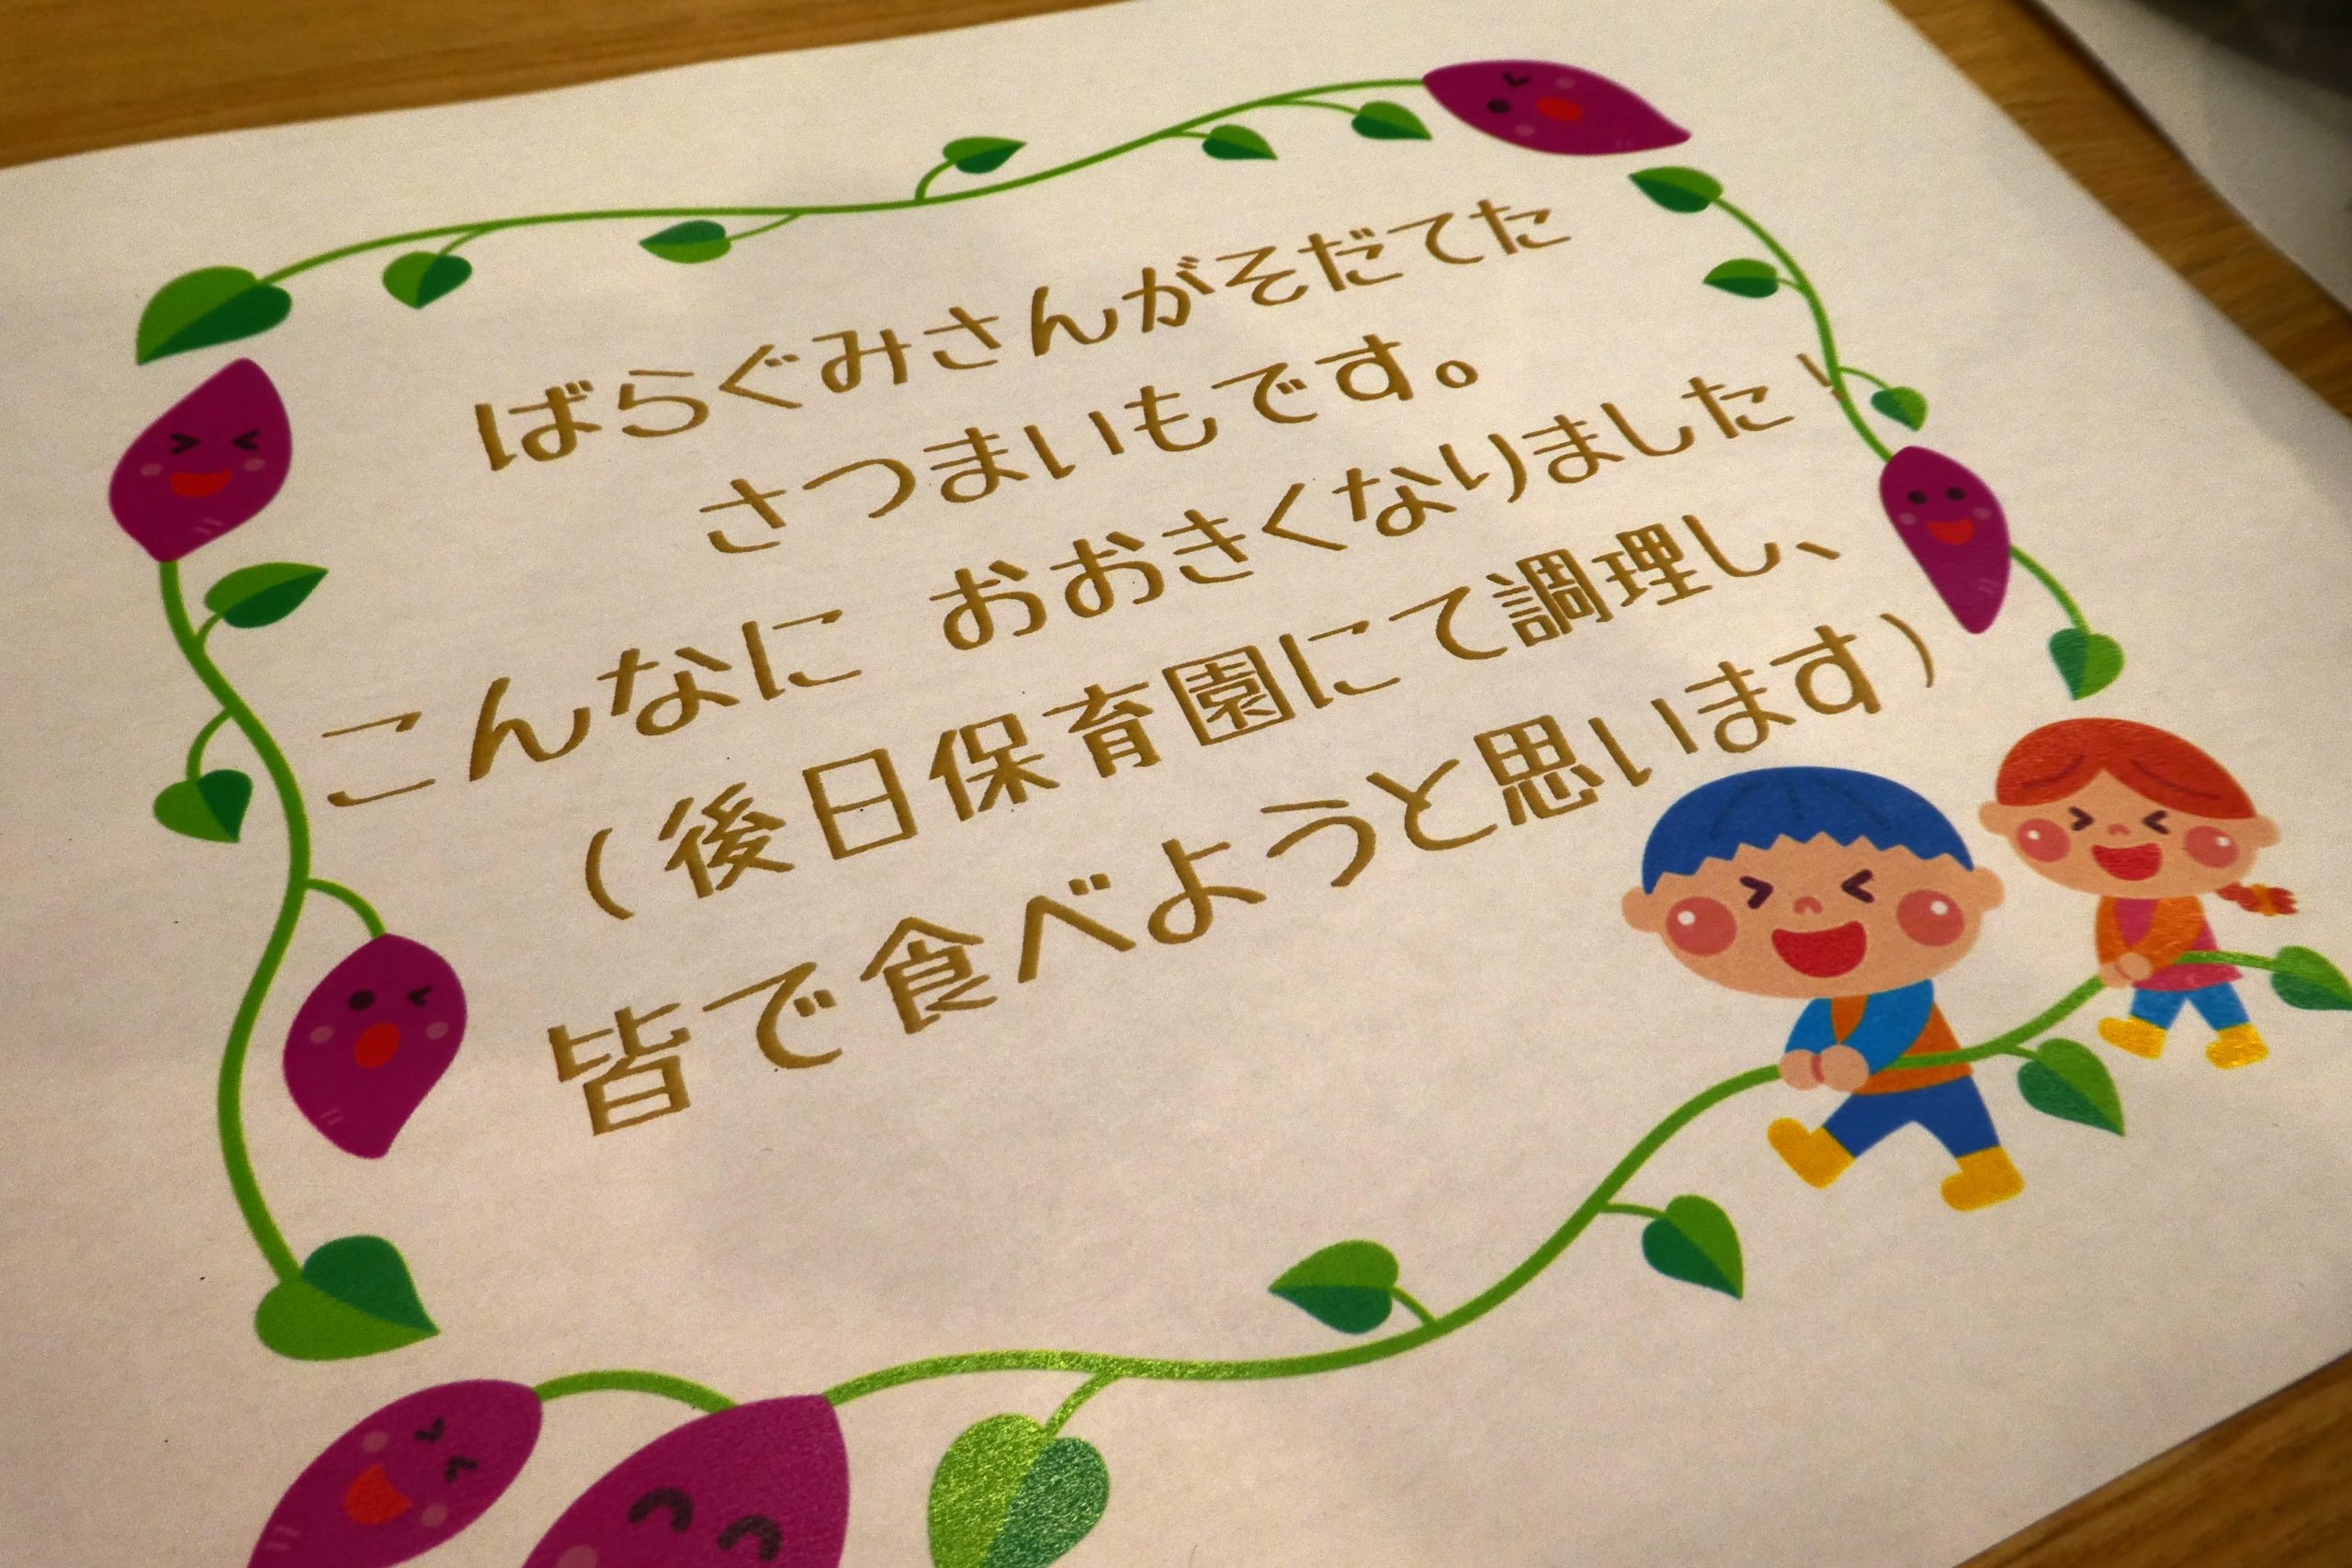 ばらぐみさんがそだてた
さつまいもです。
こんなに　おおきくなりました！
（後日保育園にて調理し、
皆で食べようと思います）